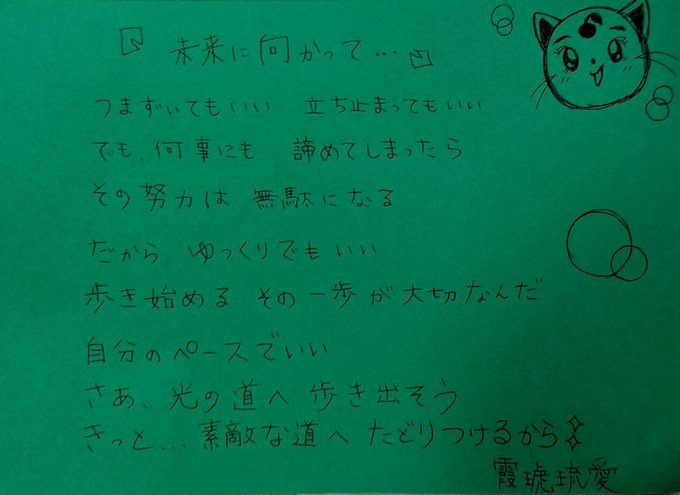 『未来に向かって…』
つまずいてもいい 立ち止まってもいい
でも、何事にも 諦めてしまったら
その努力は 無駄になる
だから、ゆっくりでもいい
歩き始める その一歩が大切なんだ
自分のペースでいい
さあ、光の道へ 歩き出そう
きっと…素敵な道へ たどりつけるから
霞琥琉愛